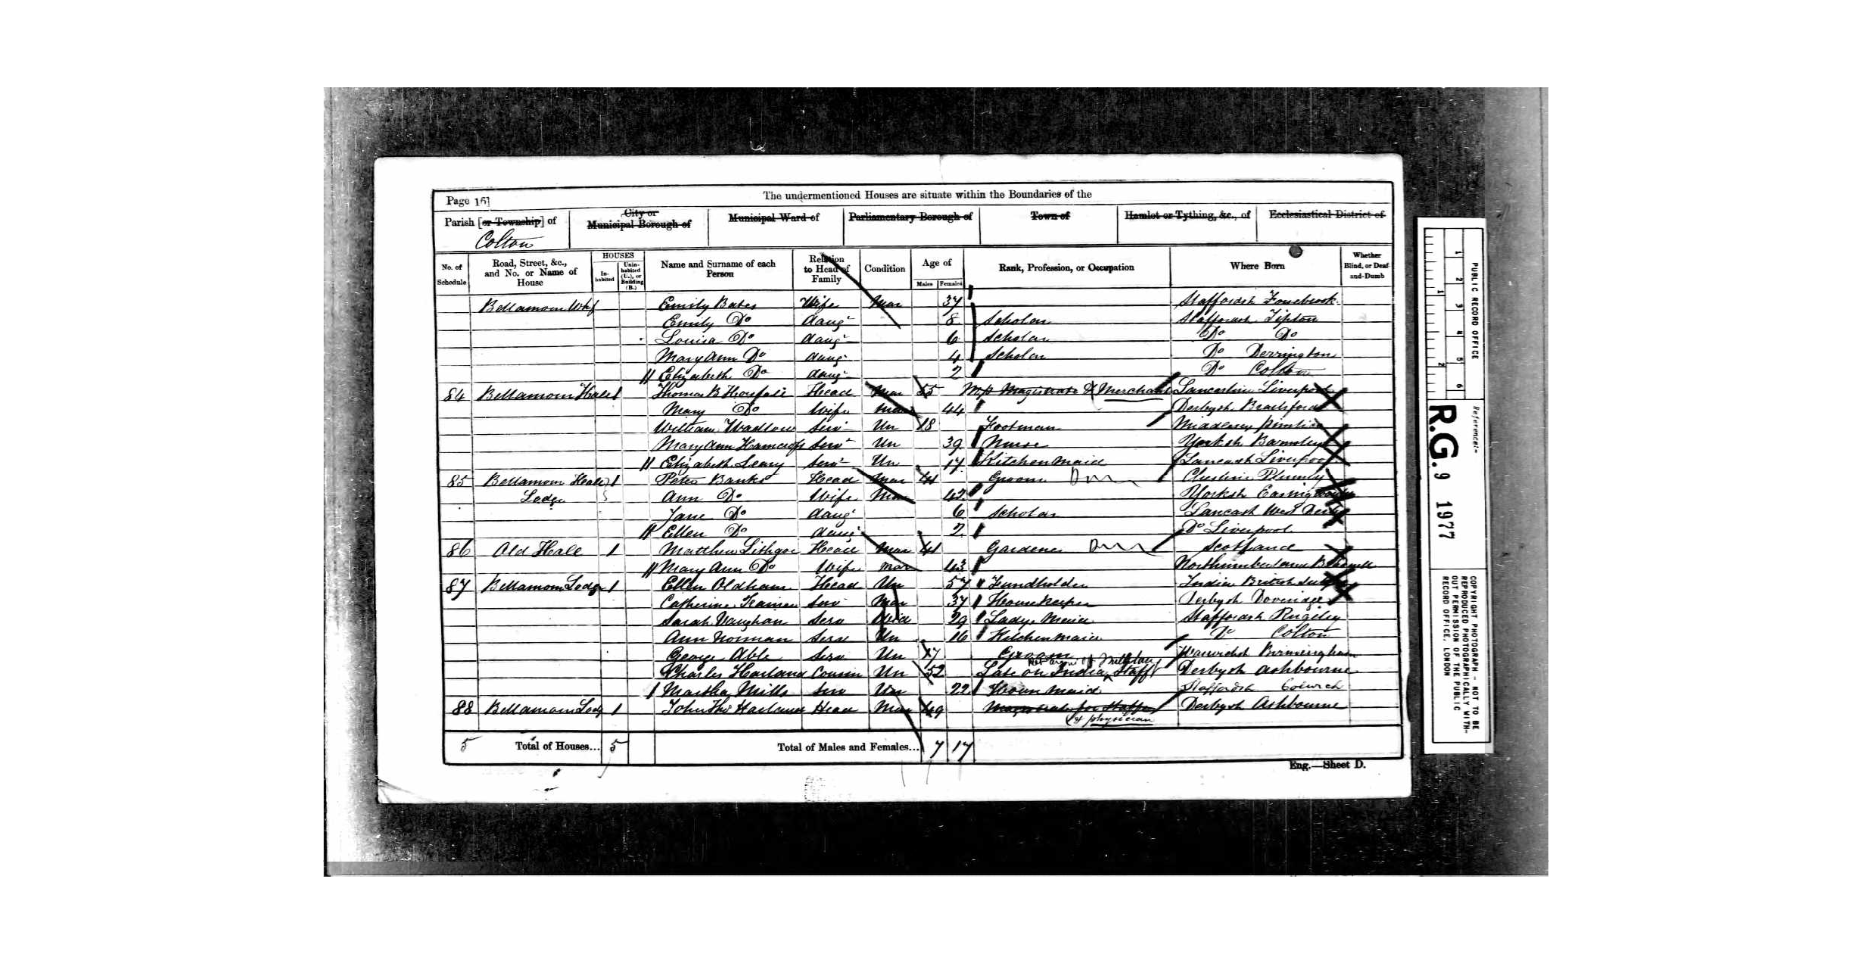 The undermentioned Houses are situate within the Boundaries of the
Page 16]
Parish [or Township] of
City or
Municipal Borough of
Municipal Ward of
Parliamentary Borough of
Town of
Hamlet or Tything, &c., of
Ecclesiastical District of
Colton
No. of Schedule
Road, Street, &c., and No. or Name of House
HOUSES
In-habited
Unin-habited (U.), or Building (B.)
Name and Surname of each Person
Relation to Head of Family
Condition
Age of
Males
Females
Rank, Profession, or Occupation
Where Born
Whether Blind, or Deaf-and-Dumb
Bellamour Emily Bates Wife Mar 37 Staffordsh
Emily Do daug 8 Scholar Staffordsh Tipton
Louisa Do daug 6 Scholar Do Do
Mary Ann Do daug 4 Scholar Do Derrington
Elizabeth Do daug 2 Do Colton
84 Bellamour 1 Thomas B Horsfall Head Mar 55 M.P. Magistrate & Merchant Lancashire Liverpool
Mary Do Wife Mar 44 Derbysh Brailsford
William Serv Un 18 Footman Middlesex Pimlico
Mary Ann Serv Un 39 Nurse Yorksh Barnsley
Elizabeth Leary Serv Un 17 Kitchen Maid Lancash Liverpool
85 Bellamour 1 Peter Banks Head Mar 41 Groom
Lodge Ann Do Wife Mar 42 Yorksh
Jane Do daug 6 Scholar Lancash West Derby
Ellen Do daug 2 Do Liverpool
86 Old Hall 1 Matthew Lithgow Head Mar 41 Gardener Scotland
Mary Ann Do Wife Mar 43 Northumberland
87 Bellamour Lodge 1 Ellen Oldham Head Un 57 Fundholder India British Subject
Catherine Serv Mar 37 Housekeeper Derbysh Doveridge
Sarah Vaughan Serv 29 Ladys Maid Staffordsh Rugeley
Ann Norman Serv Un 16 Kitchen Maid Do Colton
George Able Serv Un 17 Groom Warwicksh Birmingham
Charles Harland Cousin Un 52 Late on India Staff Derbysh Ashbourne
Martha Mills Serv Un 22 House maid Staffordsh Colwich
88 Bellamour Lodge 1 John Thos Harland Head Mar 49 Magistrate for Staffs Derbysh Ashbourne
& physician
5 Total of Houses... 5 Total of Males and Females... 7 17
Eng.—Sheet D.
PUBLIC RECORD OFFICE
Reference:-
R.G. 9 1977
COPYRIGHT PHOTOGRAPH - NOT TO BE REPRODUCED PHOTOGRAPHICALLY WITH-OUT PERMISSION OF THE PUBLIC RECORD OFFICE, LONDON